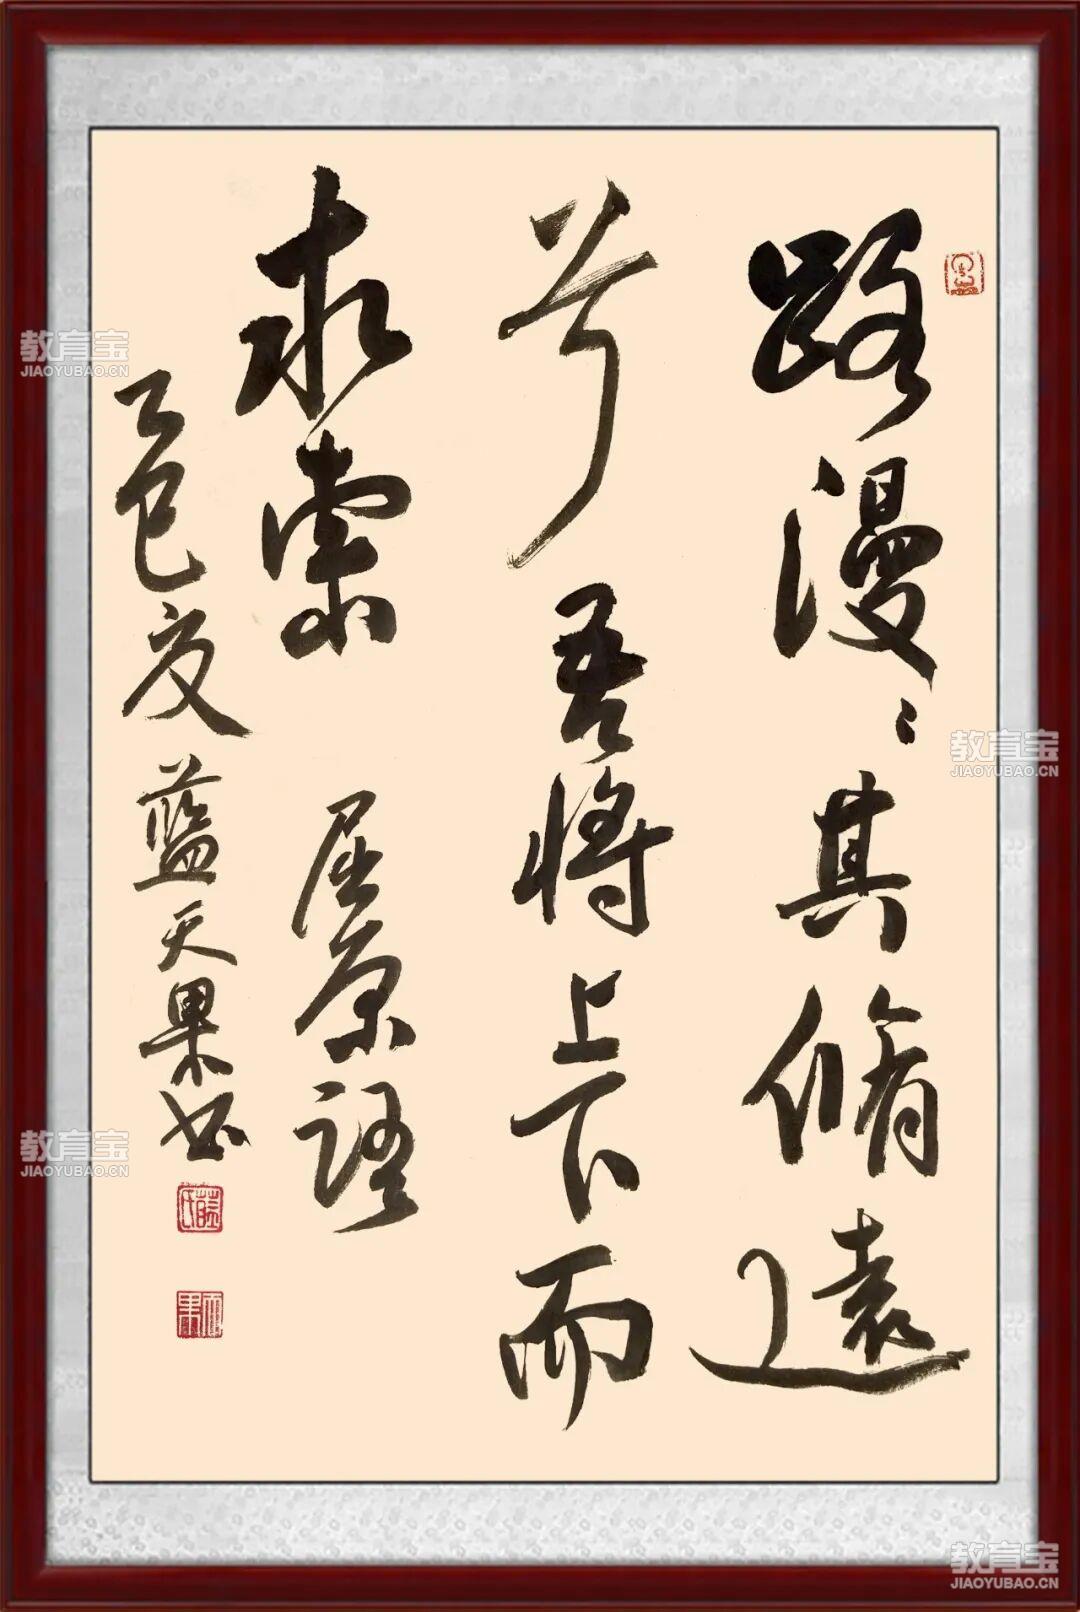 路漫〻其脩遠
兮吾将上下而
求索 屈原語
乙巳夏藍天果书
教育宝
JIAOYUBAO.CN
教育宝
JIAOYUBAO.CN
教育宝
JIAOYUBAO.CN
教育宝
JIAOYUBAO.CN